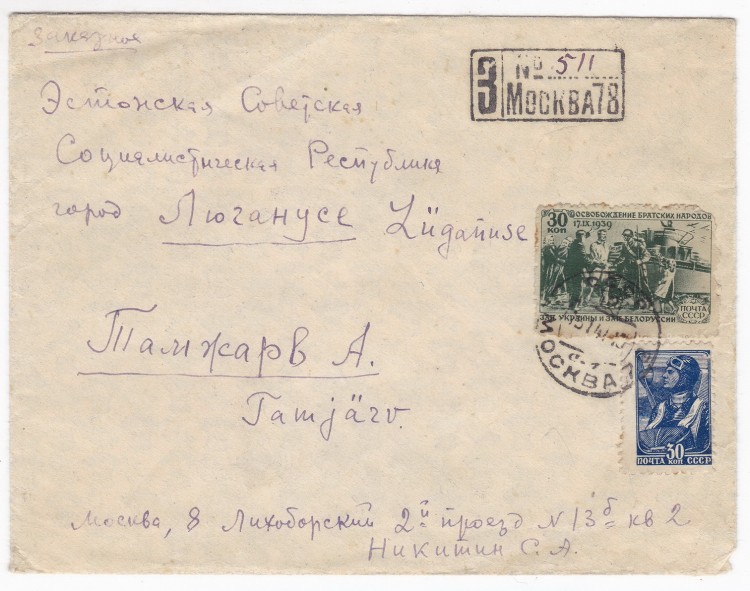 Заказное
З № 511
МОСКВА 78
Эстонская Советская
Социалистическая Республика
город Люганусе Lüganuse
30 КОП ОСВОБОЖДЕНИЕ БРАТСКИХ НАРОДОВ
17.IX.1939
ПОЧТА
СССР
ЗАП. УКРАИНЫ И ЗАП. БЕЛОРУССИИ
МОСКВА
Тамжарв А.
Tamjärv.
30
ПОЧТА КОП СССР
Москва, 8 Лихоборский 2й проезд N 13б кв 2
Никитин С.А.